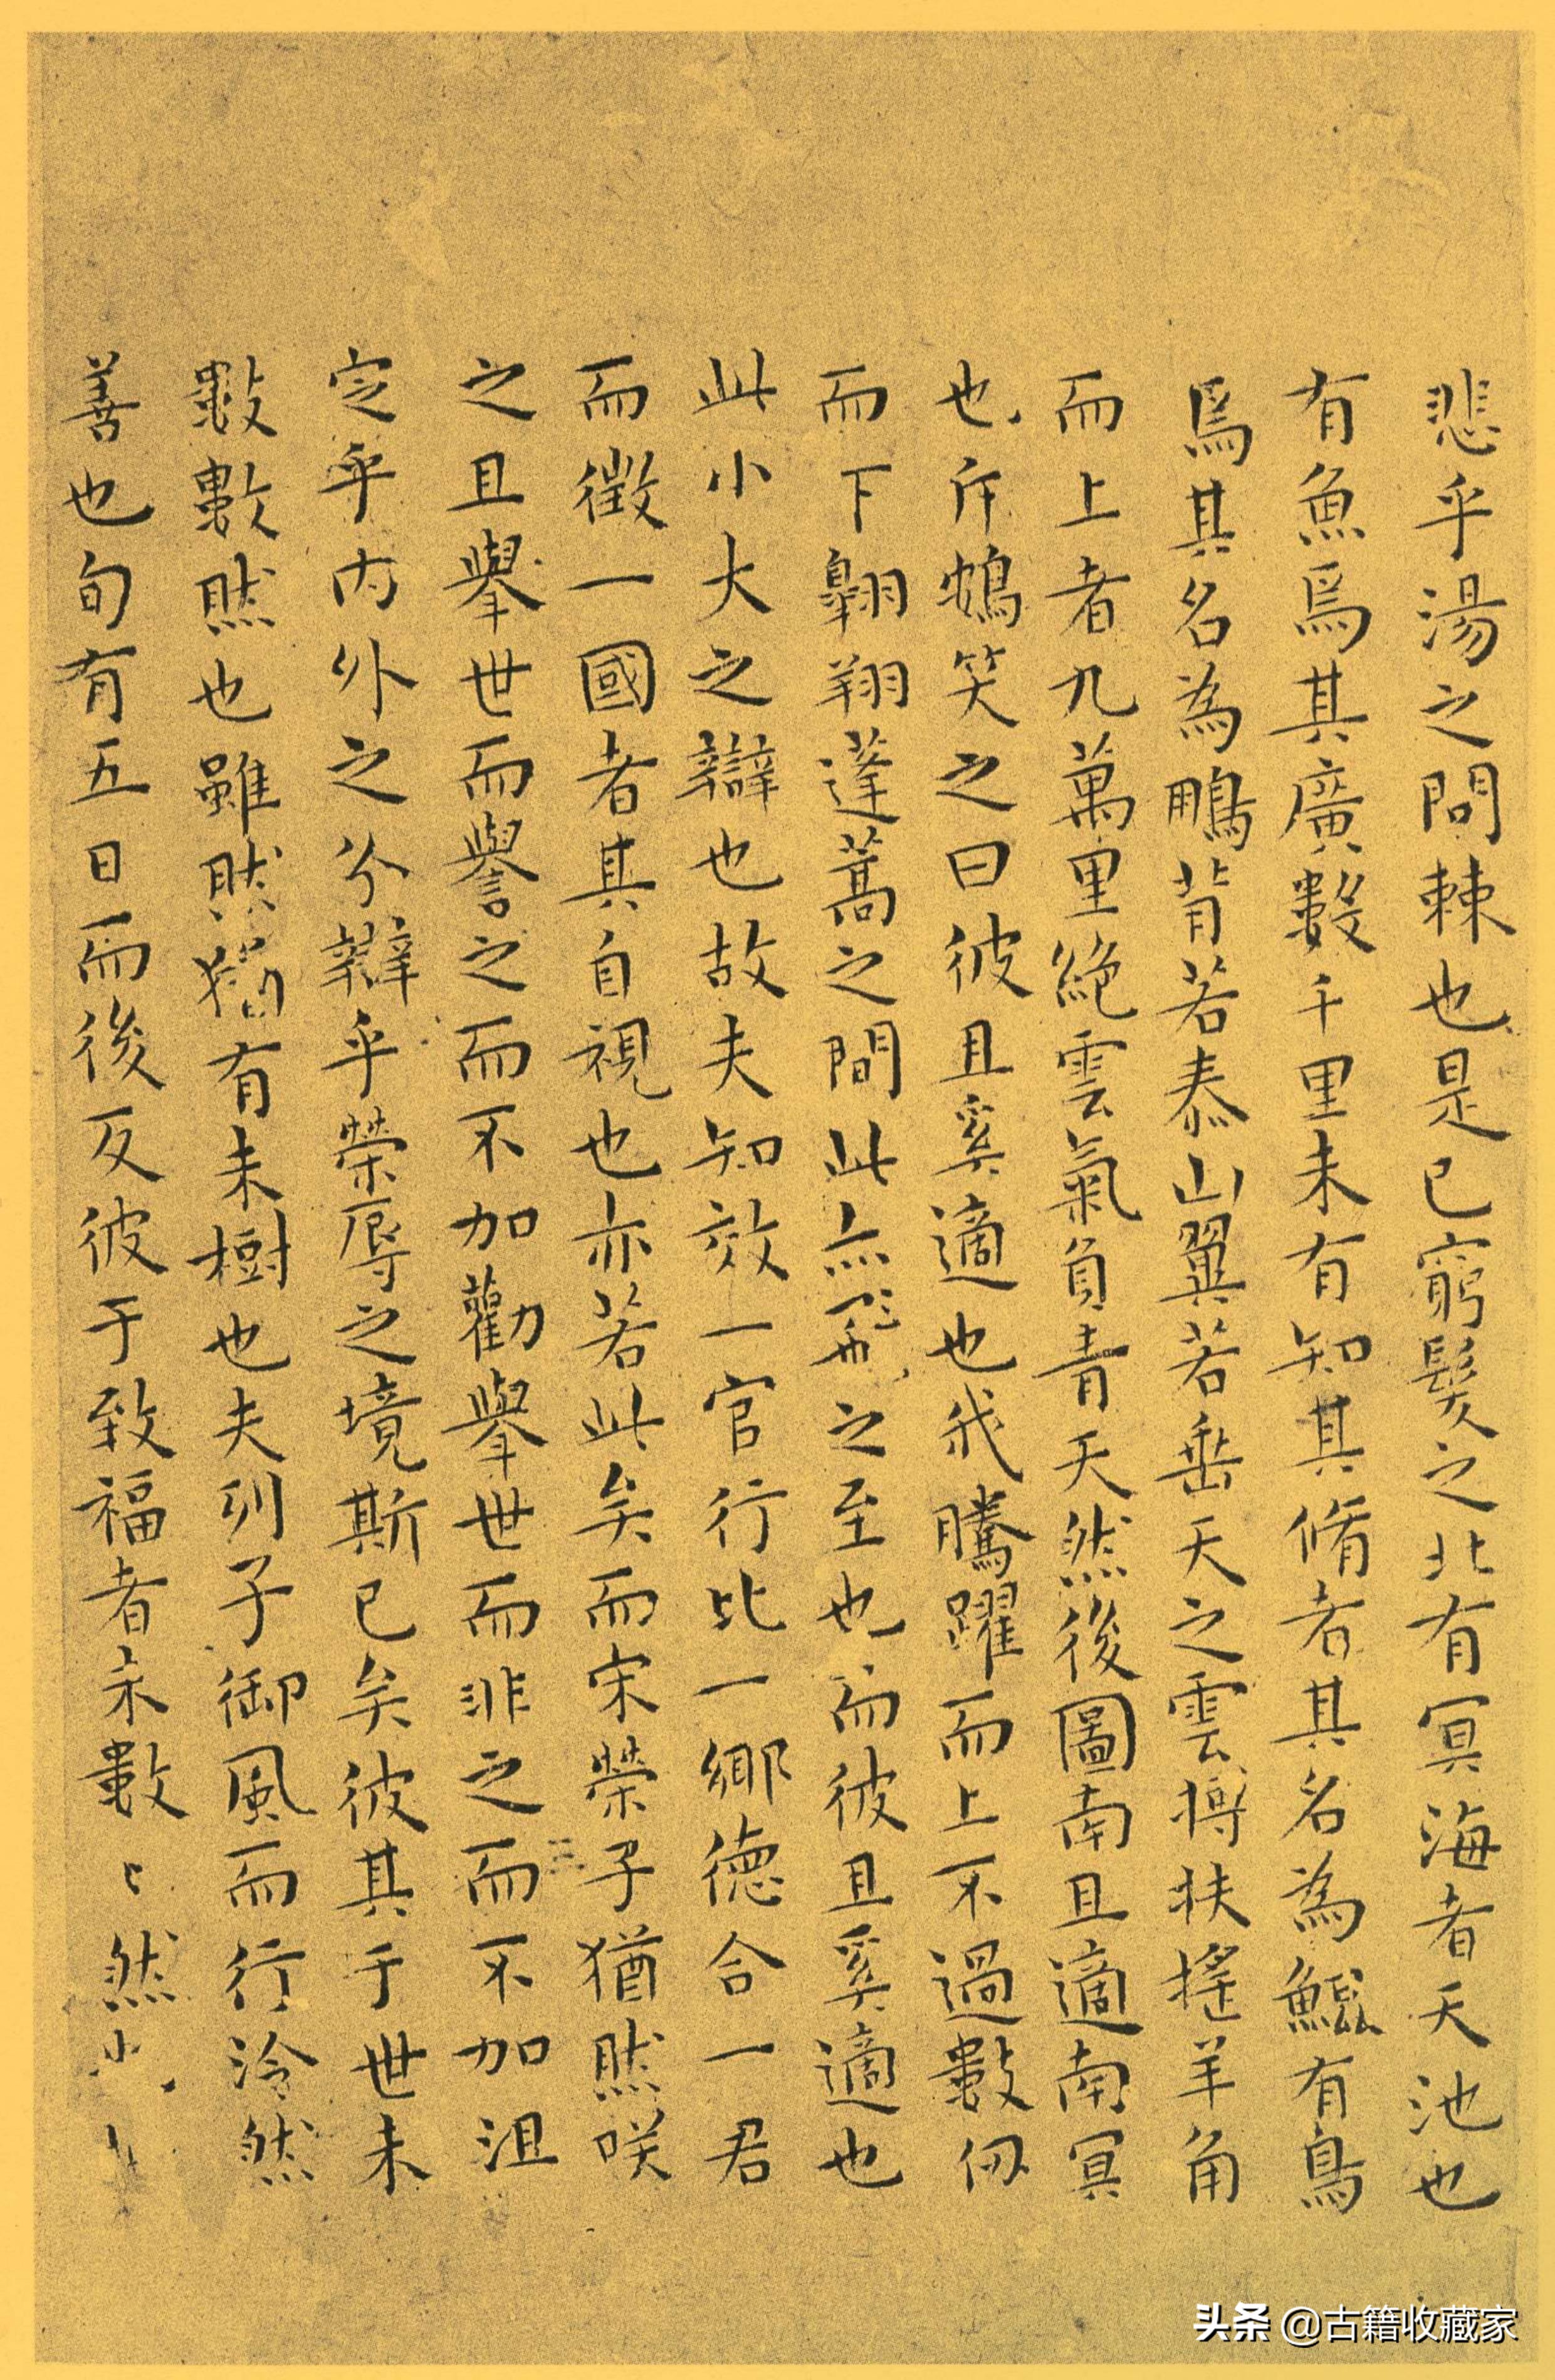 悲乎湯之問棘也是已窮髮之北有冥海者天池也
有魚焉其廣數千里未有知其脩者其名為鯤有鳥
焉其名為鵬背若泰山翼若垂天之雲搏扶搖羊角
而上者九萬里絶雲氣負青天然後圖南且適南冥
也斥鴳笑之曰彼且奚適也我騰躍而上不過數仞
而下翱翔蓬蒿之間此亦飛之至也而彼且奚適也
此小大之辯也故夫知效一官行比一鄉德合一君
而徵一國者其自視也亦若此矣而宋榮子猶然咲
之且舉世而譽之而不加勸舉世而非之而不加沮
定乎內外之分辯乎榮辱之境斯已矣彼其于世未
數數然也雖然猶有未樹也夫列子御風而行泠然
善也旬有五日而後反彼于致福者未數〻然
头条 @古籍收藏家